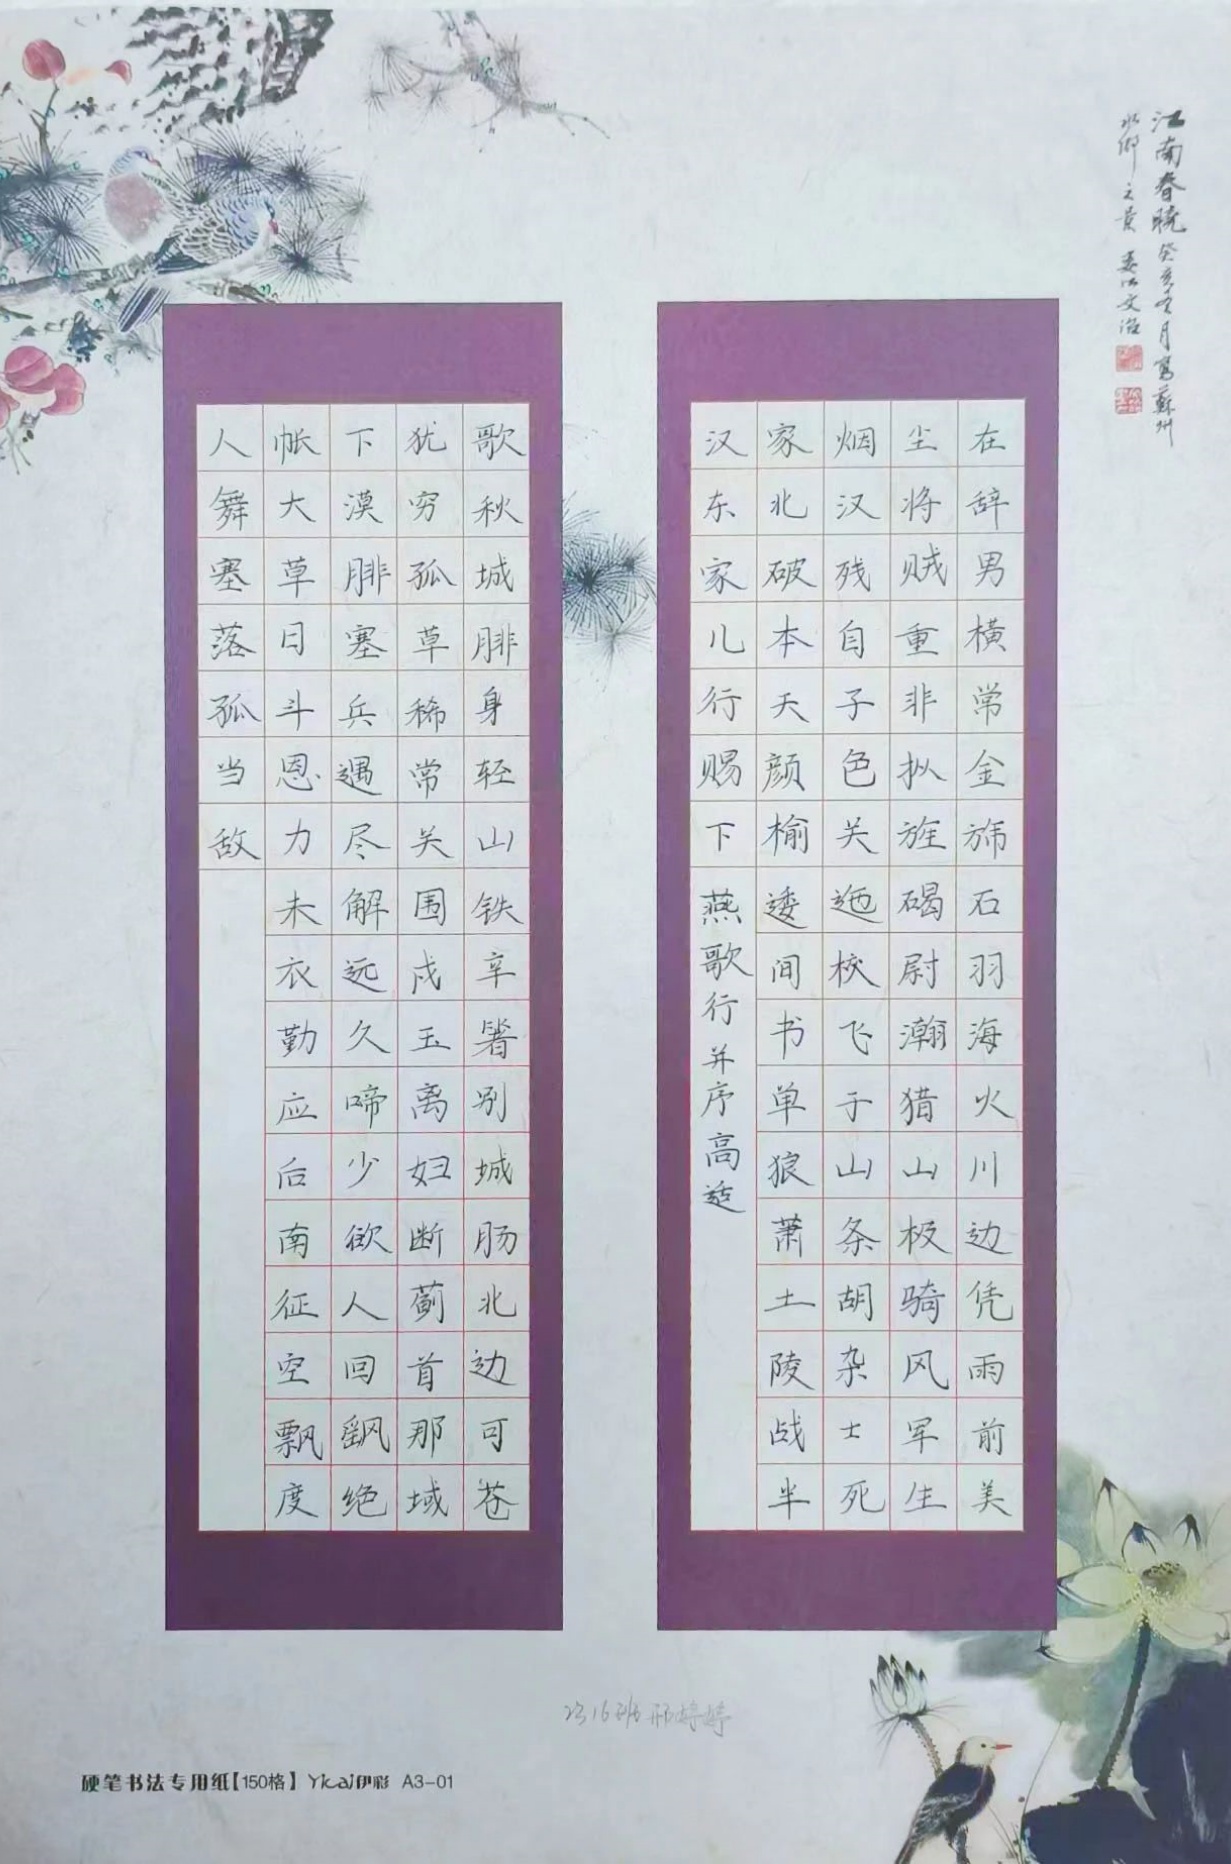 江南春曉 癸亥冬月寫蘇州
水鄉之景 婁江文治
汉家烟尘在
东北汉将辞
家破残贼男
儿本自重横
行天子非常
赐颜色拟金
下榆关旌旆
逶迤碣石
间校尉羽
书飞瀚海
单于猎火
狼山山川
萧条极边
土胡骑凭
陵杂风雨
战士军前
半死生美
燕歌行并序高适
人帐下犹歌
舞大漠穷秋
塞草腓孤城
落日塞草腓
孤斗兵稀身
当恩遇常轻
敌力尽关山
未解围铁
衣远戍辛
勤久玉箸
应啼离别
后少妇城
南欲断肠
征人蓟北
空回首边
飘飖那可
度绝域苍
2316班 邢婷婷
硬笔书法专用纸【150格】 Yicai伊彩 A3-01